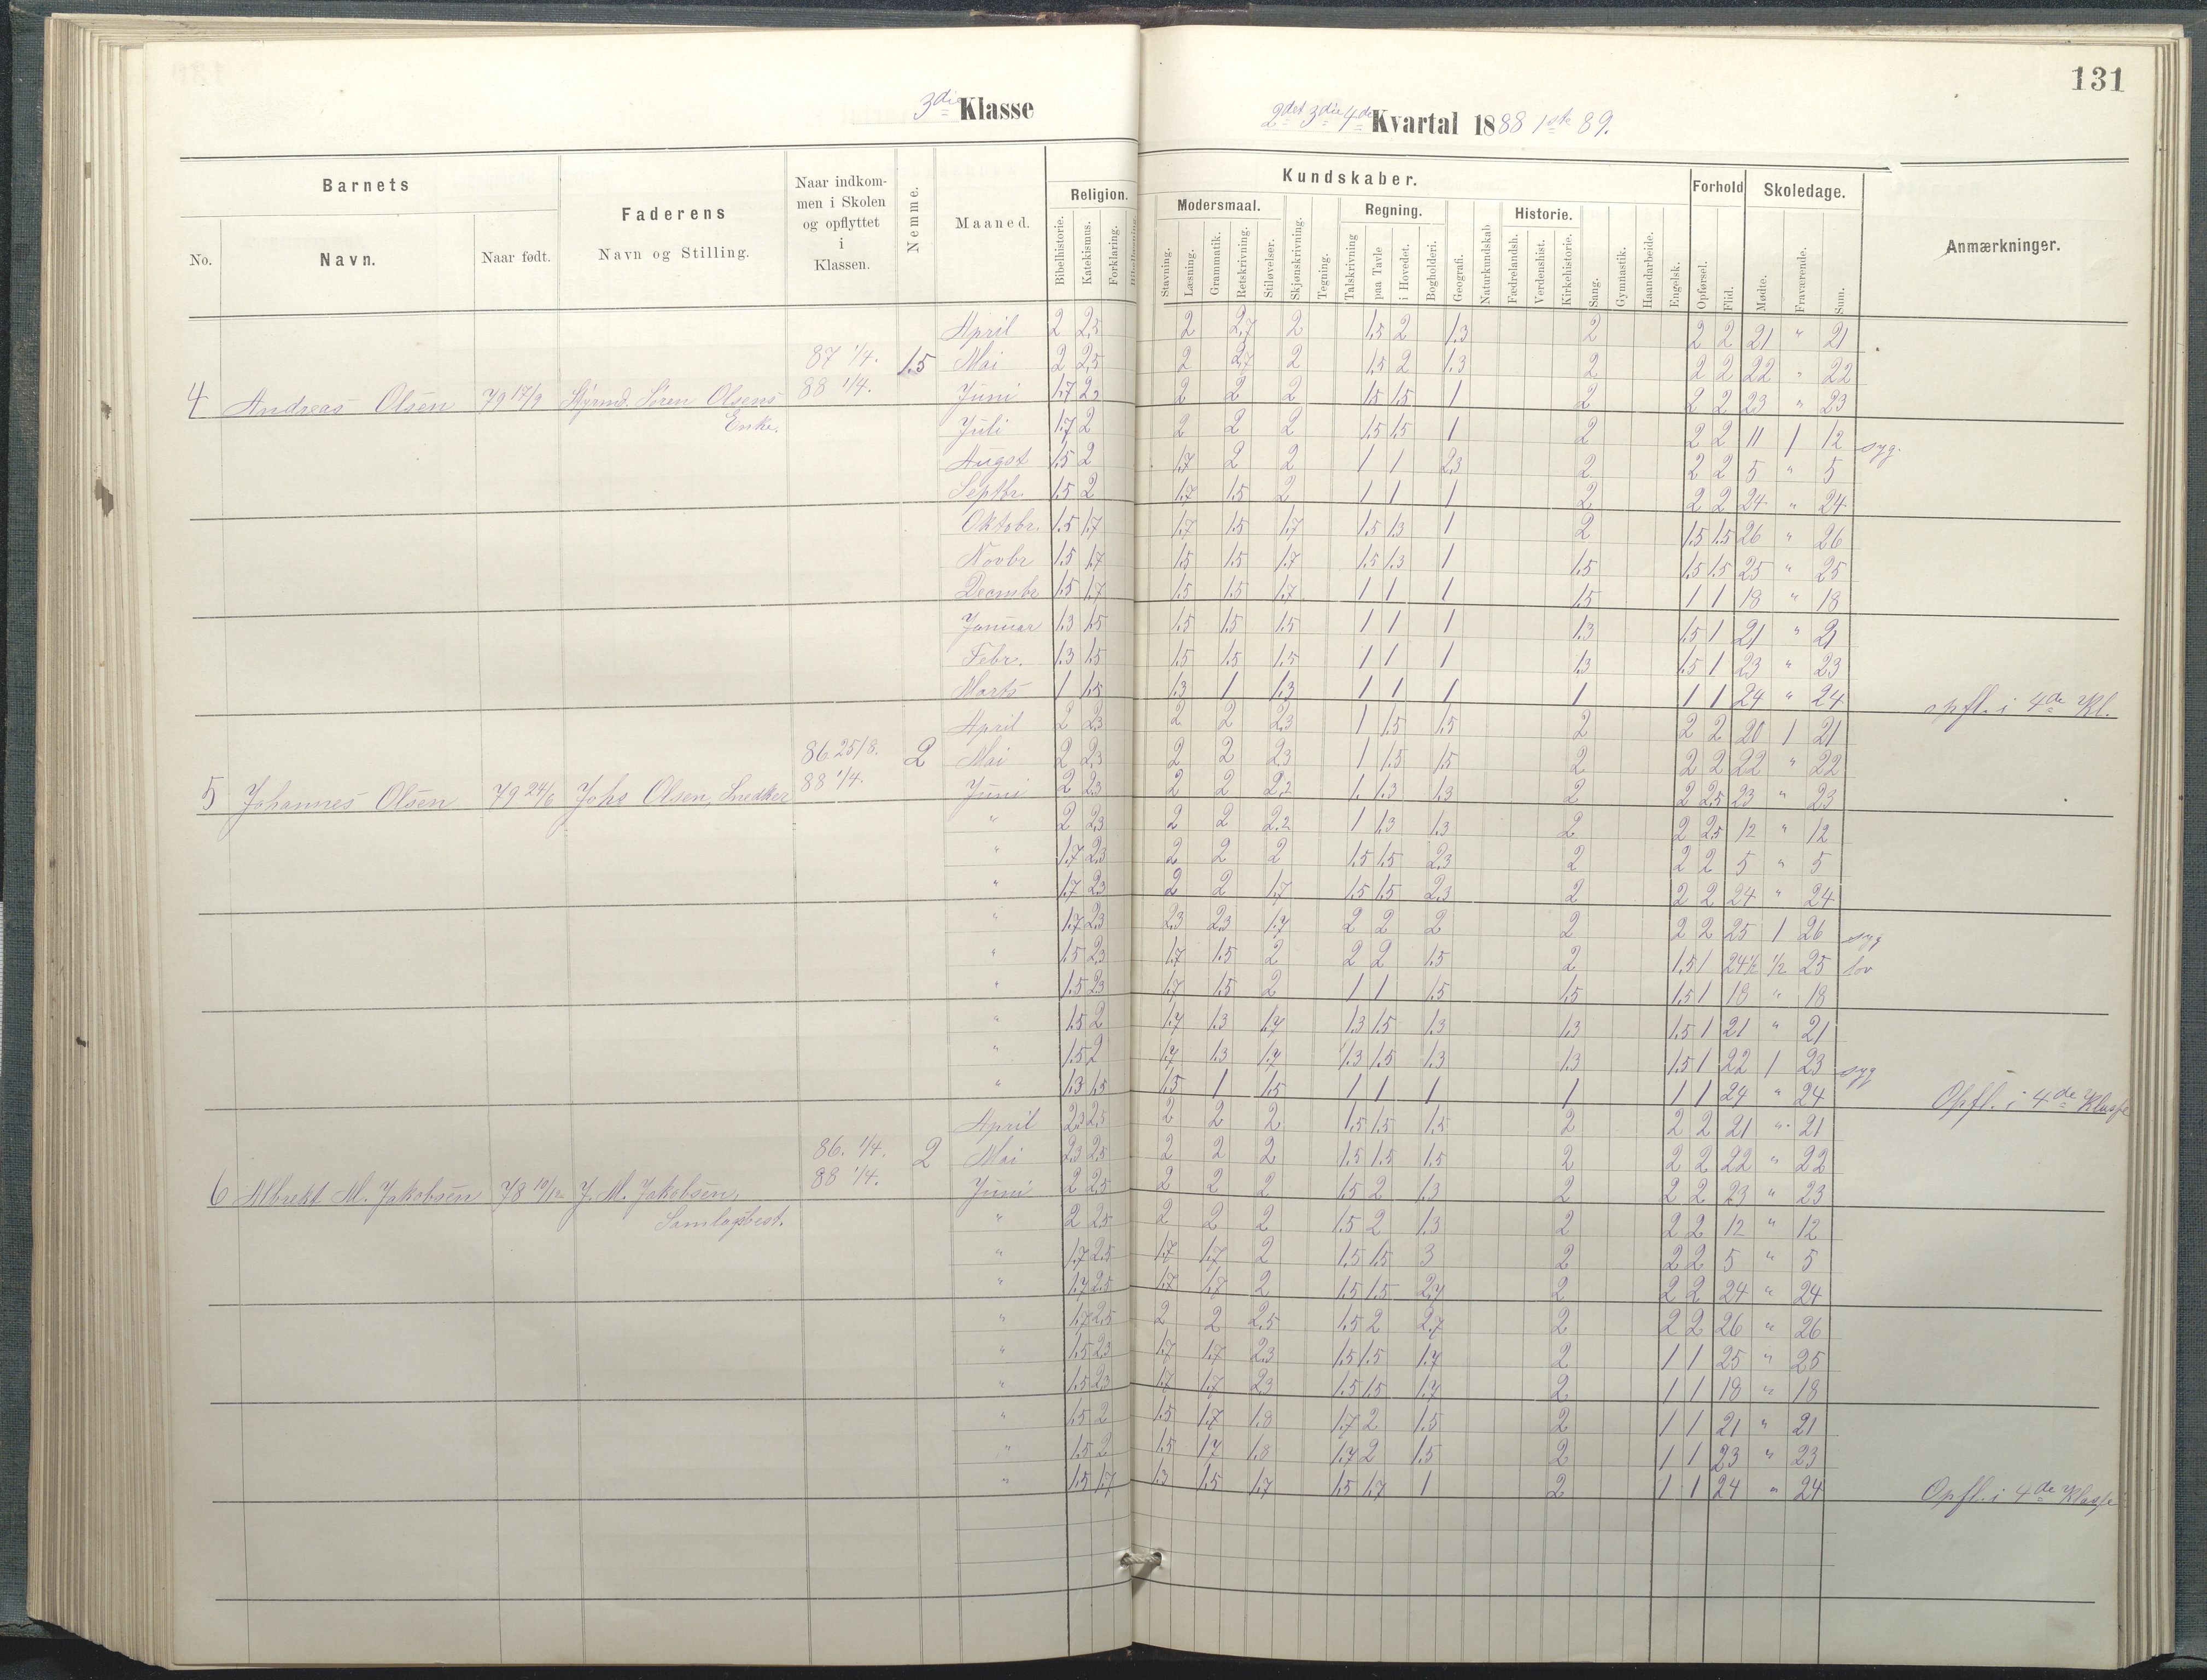 131
3die Klasse
2det 3die 4de Kvartal 1888 1ste 89.
Barnets
Faderens
Naar indkommen i Skolen og opflyttet i Klassen.
Nemme.
Maaned.
Kundskaber.
Forhold
Skoledage.
Anmærkninger.
No.
Navn.
Naar født.
Navn og Stilling.
Religion.
Modersmaal.
Regning.
Historie.
Bibelhistorie.
Katekismus.
Forklaring.
Stavning.
Læsning.
Grammatik.
Retskrivning.
Stiløvelser.
Skjønskrivning.
Tegning.
Talskrivning
paa Tavle
i Hovedet.
Bogholderi.
Geografi.
Naturkundskab.
Fædrelandsh.
Verdenshist.
Kirkehistorie.
Sang.
Gymnastik.
Haandarbeide.
Engelsk.
Opførsel.
Flid.
Mødte.
Fraværende.
Sum.
April 2 2,5 2 2,7 2 1,5 2 1,3 2 2 2 21 " 21
87 1/4. 1,5 Mai 2 2,5 2 2,7 2 1,5 2 1,3 2 2 2 22 " 22
4 Andreas Olsen 79 17/9 Styrmd. Sören Olsens 88 1/4. Juni 1,7 2 2 2 2 1,5 1,5 1 2 2 2 23 " 23
Enke. Juli 1,7 2 2 2 2 1,5 1,5 1 2 2 2 11 1 12 syg.
Augst 1,5 2 1,7 2 2 1 1 2,3 2 2 2 5 " 5
Septbr. 1,5 2 1,7 1,5 2 1 1 1 2 2 2 24 " 24
Oktobr. 1,5 1,7 1,7 1,5 1,7 1,5 1,3 1 2 1,5 1,5 26 " 26
Novbr 1,5 1,7 1,5 1,5 1,7 1,5 1,3 1 1,5 1,5 1,5 25 " 25
Decmbr 1,5 1,7 1,5 1,5 1,7 1 1 1 1,5 1 1 18 " 18
Januar 1,3 1,5 1,5 1,5 1,5 1 1 1 1,3 1,5 1 21 " 21
Febr. 1,3 1,5 1,5 1,5 1,5 1 1 1 1,3 1,5 1 23 " 23
Marts 1 1,5 1,3 1 1,3 1 1 1 1 1 1 24 " 24 opfl. i 4de Kl.
April 2 2,3 2 2 2,3 1 1,5 1,5 2 2 2 20 1 21
86 25/8. 2 Mai 2 2,3 2 2 2,3 1 1,5 1,5 2 2 2 22 " 22
5 Johannes Olsen 79 24/6 Johs Olsen, Snedker 88 1/4. Juni 2 2,3 2 2 2,2 1 1,3 1,3 2 2 2,5 23 " 23
" 2 2,3 2 2 2,2 1 1,3 1,3 2 2 2,5 12 " 12
" 1,7 2,3 2 2 2 1,5 1,5 2,3 2 2 2 5 " 5
" 1,7 2,3 2 2 1,7 1,5 1,5 2,3 2 2 2 24 " 24
" 1,7 2,3 2,3 2,3 1,7 2 2 2 2 2 2 25 1 26 syg
" 1,5 2,3 1,7 1,5 2 2 2 1,5 2 1,5 1 24 1/2 1/2 25 lov
" 1,5 2,3 1,7 1,5 2 1 1 1,5 1,5 1,5 1 18 " 18
" 1,5 2 1,7 1,3 1,7 1,3 1,5 1,3 1,3 1,5 1 21 " 21
" 1,5 2 1,7 1,3 1,7 1,3 1,5 1,3 1,3 1,5 1 22 1 23 syg
" 1,3 1,5 1,5 1 1,5 1 1 1 1 1 1 24 " 24 Opfl. i 4de Klasse
April 2,3 2,5 2 2 2 1,5 1,5 1,5 2 2 2 21 " 21
86. 1/4. 2 Mai 2,3 2,5 2 2 2 1,5 1,5 1,5 2 2 2 22 " 22
6 Albrekt M. Jakobsen 78 10/12 J. M. Jakobsen, 88 1/4. Juni 2 2,5 2 2 2 1,5 2 1,3 2 2 2 23 " 23
Samlagsbest. " 2 2,5 2 2 2 1,5 2 1,3 2 2 2 12 " 12
" 1,7 2,5 1,7 1,7 2 1,5 1,5 3 2 2 2 5 " 5
" 1,7 2,5 1,7 1,7 2 1,5 1,5 2,7 2 2 2 24 " 24
" 1,7 2,5 2 2 2,5 1,5 2 2,7 2 2 2 26 " 26
" 1,5 2,3 1,7 1,7 2,3 1,5 1,5 1,7 2 1 1 25 " 25
" 1,5 2,3 1,7 1,7 2,3 1,5 1,5 1,7 2 1 1 18 " 18
" 1,5 2 1,5 1,7 1,8 1,7 2 1,5 2 1 1 21 " 21
" 1,5 2 1,5 1,7 1,8 1,7 2 1,5 2 1 1 23 " 23
" 1,5 1,7 1,3 1,5 1,7 1,5 1,7 1 2 1 1 24 " 24 Opfl. i 4de Klasse